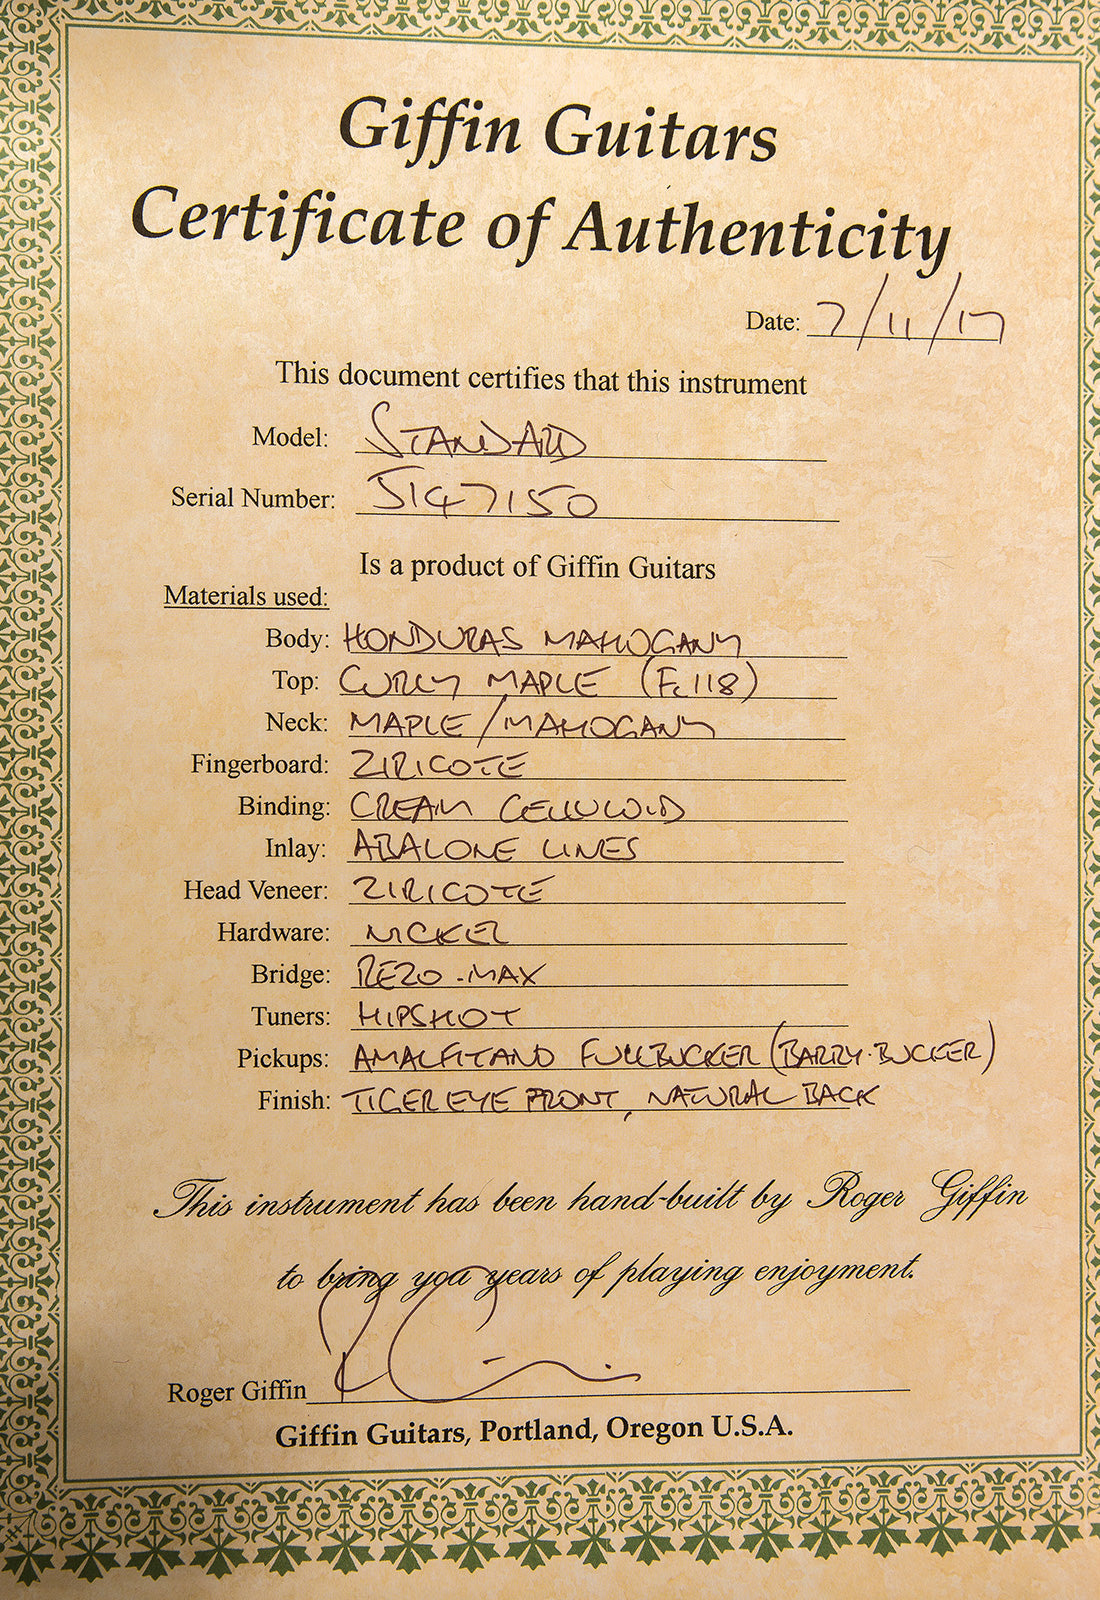 Giffin Guitars
Certificate of Authenticity
Date: 7/11/17
This document certifies that this instrument
Model: STANDARD
Serial Number: 5147150
Is a product of Giffin Guitars
Materials used:
Body: HONDURAS MAHOGANY
Top: CURLY MAPLE (FC118)
Neck: MAPLE/MAHOGANY
Fingerboard: ZIRICOTE
Binding: CREAM CELLULOID
Inlay: ABALONE LINES
Head Veneer: ZIRICOTE
Hardware: NICKEL
Bridge: REZO-MAX
Tuners: HIPSHOT
Pickups: AMALFITANO FULLBUCKER (BARRY-BUCKER)
Finish: TIGER EYE FRONT, NATURAL BACK
This instrument has been hand-built by Roger Giffin
to bring you years of playing enjoyment.
Roger Giffin
Giffin Guitars, Portland, Oregon U.S.A.